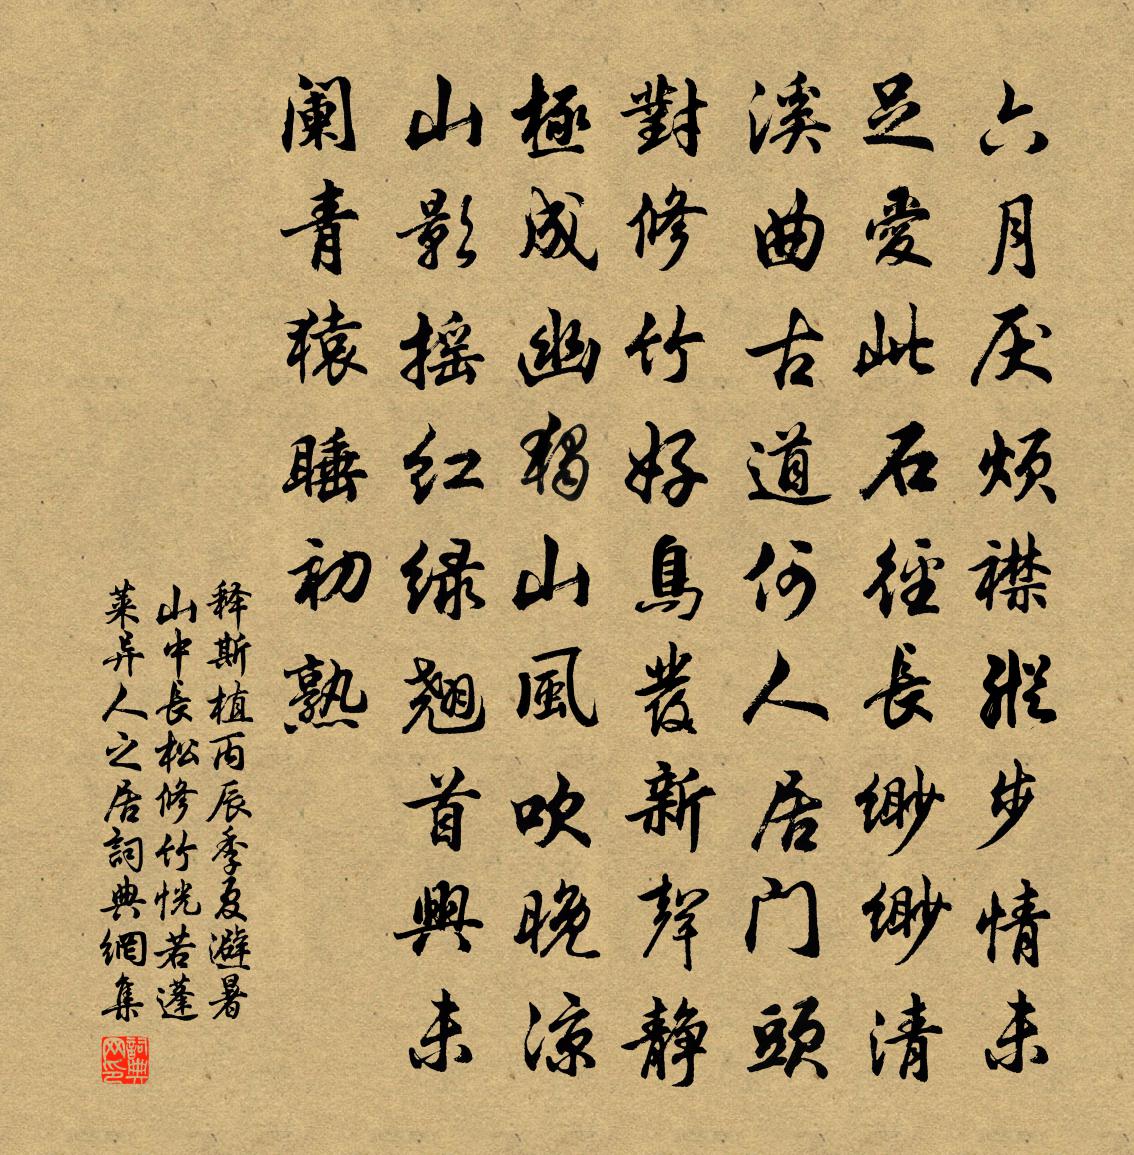 六月厌烦襟縱步情未
足愛此石徑長緲緲清
溪曲古道何人居门頭
對修竹好鳥發新聲静
極成幽獨山風吹晚凉
山影摇红绿翘首興未
阑青猿睡初熟
释斯植丙辰季夏避暑
山中長松修竹恍若蓬
莱异人之居詞典網集
詞典网印